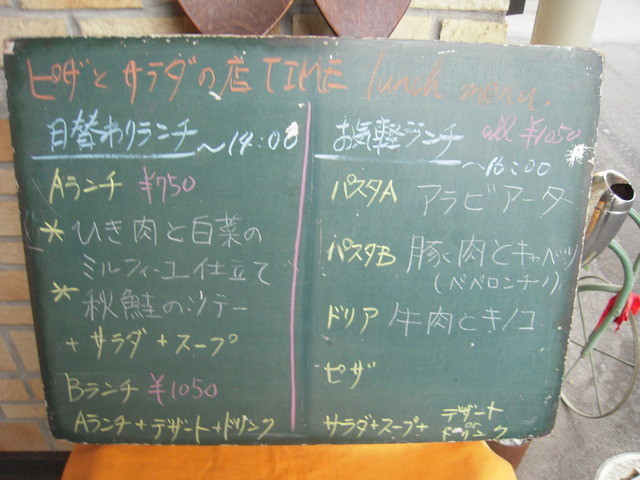 ピザとサラダの店 TIME lunch menu.
日替わりランチ 〜14:00
Aランチ ¥750
* ひき肉と白菜の
ミルフィーユ仕立て
* 秋鮭のソテー
+ サラダ + スープ
Bランチ ¥1050
Aランチ + デザート + ドリンク
お気軽ランチ all ¥1050
〜16:00
パスタA アラビアータ
パスタB 豚肉とキャベツ
(ペペロンチーノ)
ドリア 牛肉とキノコ
ピザ
サラダ+スープ+ デザート
or
ドリンク